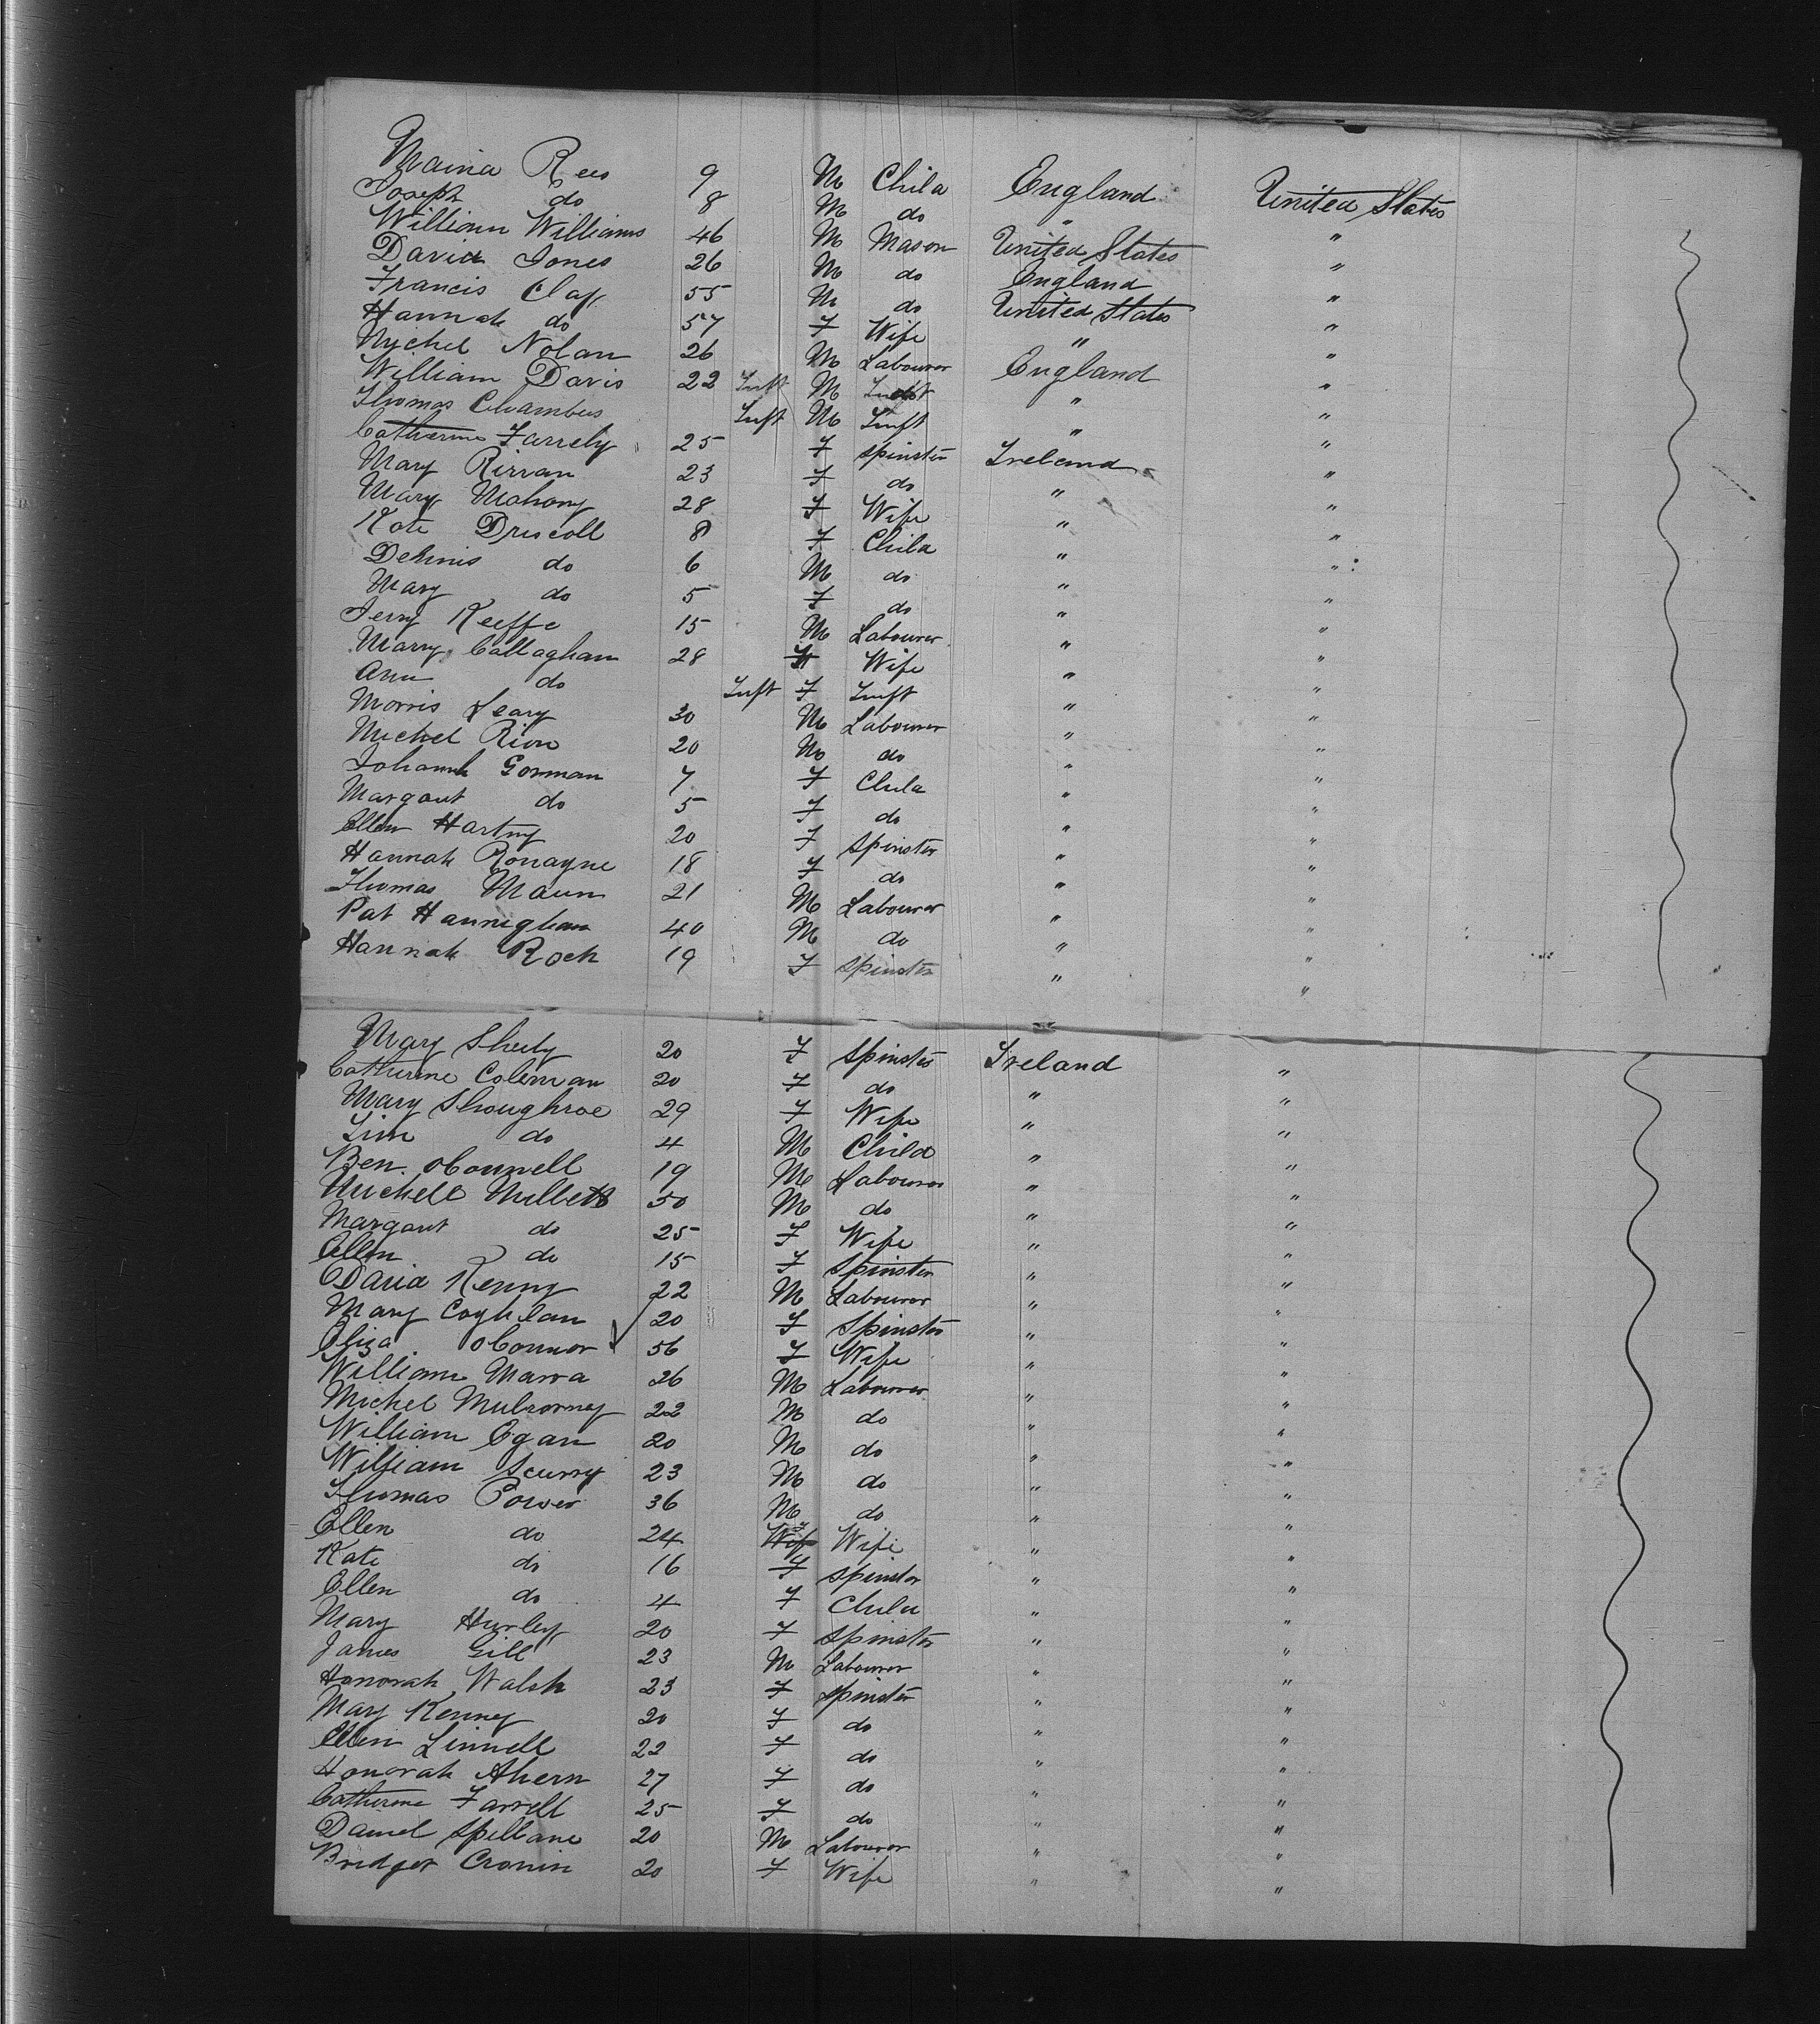 Maina Rees 9 M Child England United States
Joseph do 8 M do " "
William Williams 46 M Mason United States "
David Jones 26 M do England "
Francis Clap 55 M do United States "
Hannah do 57 F Wife " "
Michel Nolan 26 M Labourer England "
William Davis 22 Inft M "
Thomas Chambers Inft M Inft " "
Catherine Farrely 25 F Spinster Ireland "
Mary Rirvan 23 F do " "
Mary Mahony 28 F Wife " "
Kate Driscoll 8 F Child " "
Dennis do 6 M do " "
Mary do 5 F do " "
Jerry Keeffe 15 M Labourer " "
Marry Callaghan 28 F Wife " "
Ann do Inft F Inft " "
Morris Leary 30 M Labourer " "
Michel Rion 20 M do " "
Johannh Gorman 7 F Child " "
Margaut do 5 F do " "
Ellen Hartny 20 F Spinster " "
Hannah Ronayne 18 F do " "
Thomas Maun 21 M Labourer " "
Pat Hannighan 40 M do " "
Hannah Roch 19 F Spinster " "
Mary Sheehy 20 F Spinster Ireland "
Catherine Coleman 20 F do " "
Mary Shoughroe 29 F Wife " "
Tim do 4 M Child " "
Ben. oConnell 19 M Labourer " "
Michell Millett 50 M do " "
Margaut do 25 F Wife " "
Ellen do 15 F Spinster " "
David Kenny 22 M Labourer " "
Mary Coghlan 20 F Spinster " "
Eliza oConnor 56 F Wife " "
William Marra 26 M Labourer " "
Michel Mulrooney 22 M do " "
William Egan 20 M do " "
William Scurry 23 M do " "
Thomas Power 36 M do " "
Ellen do 24 F Wife " "
Kate do 16 F Spinster " "
Ellen do 4 F Child " "
Mary Hurley 20 F Spinster " "
James Gill 23 M Labourer " "
Honorah Walsh 23 F Spinster " "
Mary Kenney 20 F do " "
Ellen Linnell 22 F do " "
Honorah Ahern 27 F do " "
Catherine Farrell 25 F do " "
Daniel Spillane 20 M Labourer " "
Bridget Cronin 20 F Wife " "